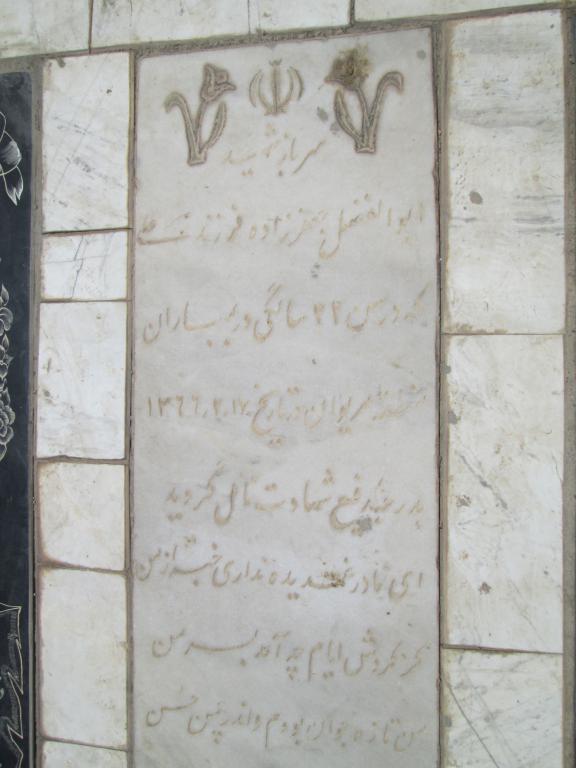 سرباز شهید
ابوالفضل جعفرزاده فرزند
که در سن ۲۲ سالگی در بمباران
منطقه مریوان در تاریخ ۱۳۶۶٫۲٫۱۷
بدرجه رفیع شهادت نائل گردید
ای مادر غمدیده نداری خبر از من
کز گردش ایام چه آمد بسر من
من تازه جوان بودم و اندر چمن حسن